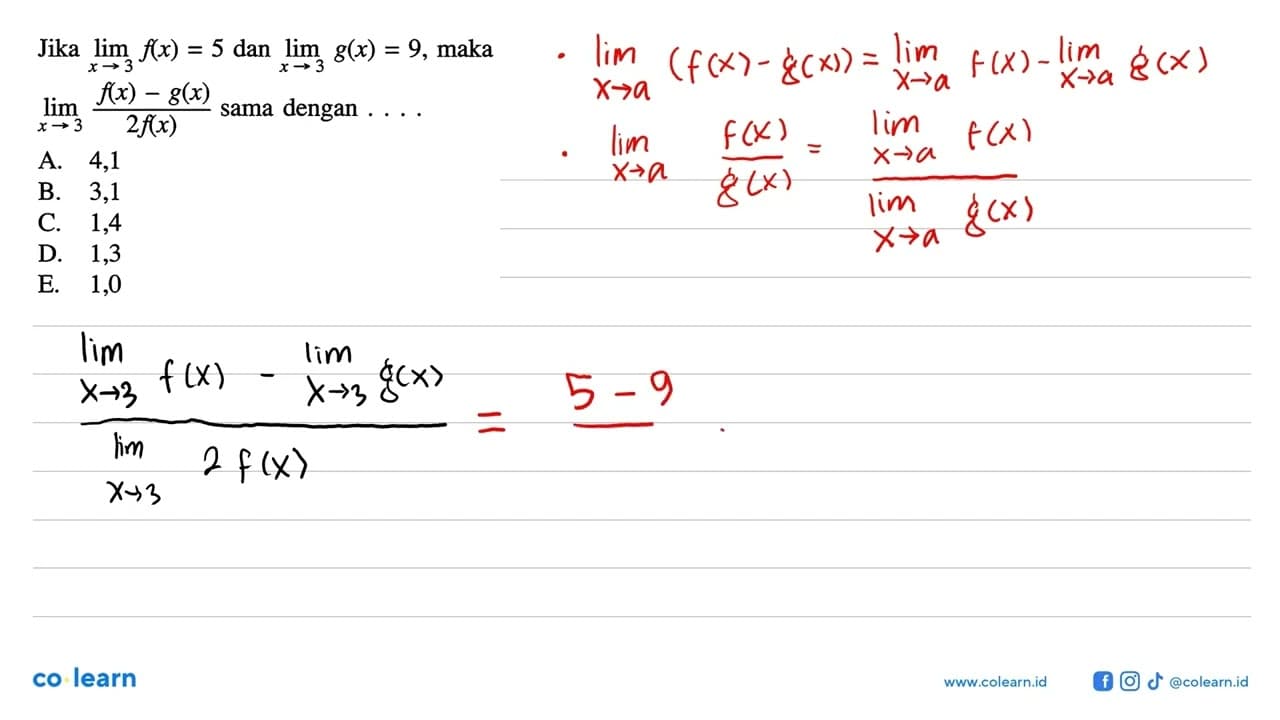 Jika lim x→3 f(x) = 5 dan lim x→3 g(x) = 9, maka
lim x→3 (f(x) − g(x))/(2f(x)) sama dengan . . . .
A. 4,1
B. 3,1
C. 1,4
D. 1,3
E. 1,0
• lim x→a (f(x) - g(x)) = lim x→a f(x) - lim x→a g(x)
• lim x→a f(x)/g(x) = lim x→a f(x) / lim x→a g(x)
lim x→3 f(x) - lim x→3 g(x) = 5 - 9
lim x→3 2 f(x)
co learn
www.colearn.id
@colearn.id